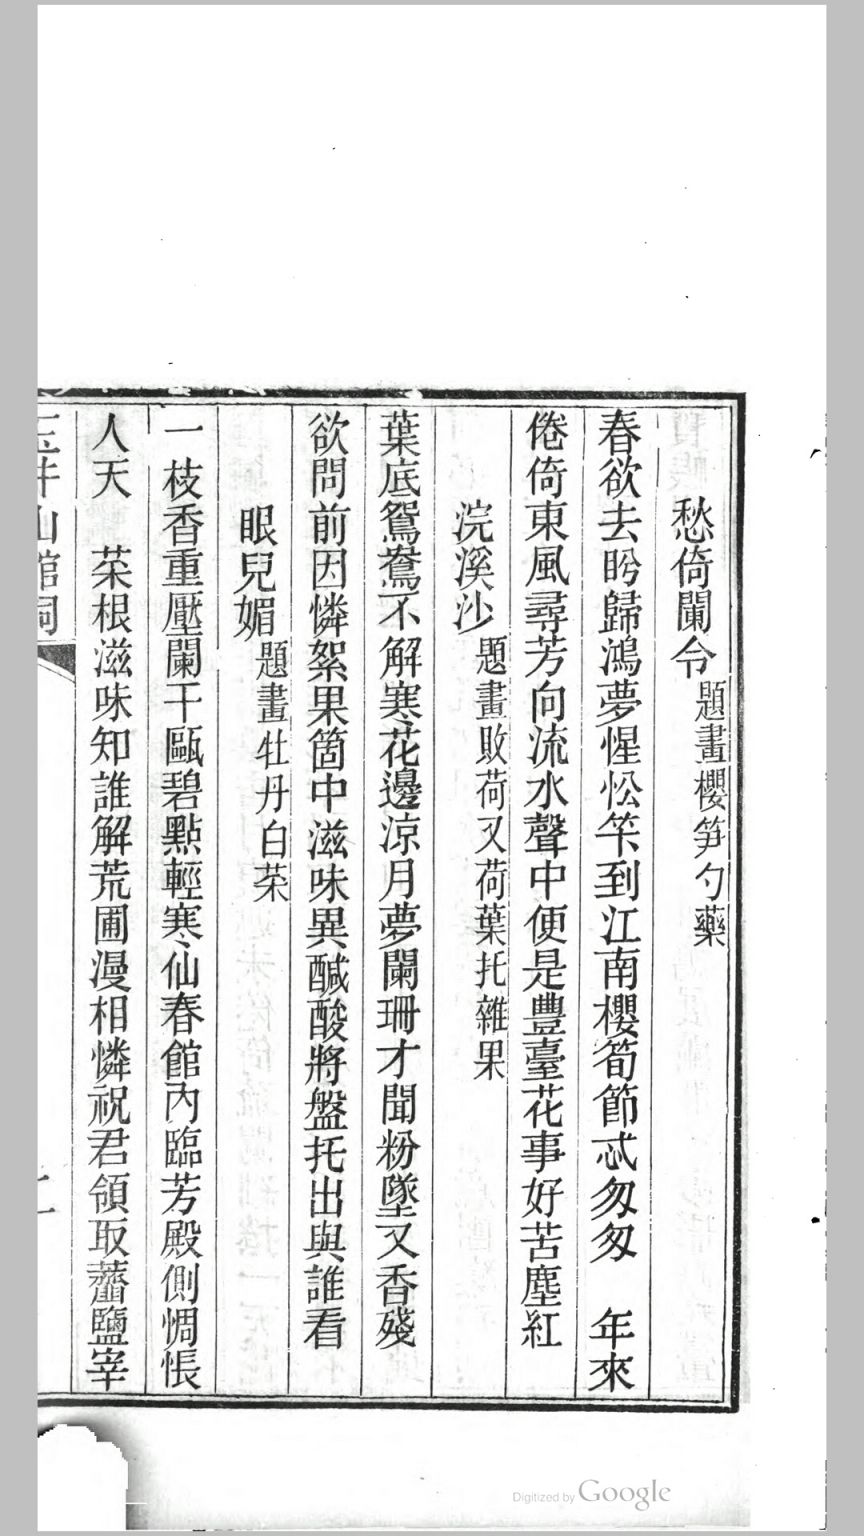 愁倚闌令題畫櫻笋勺藥
春欲去盻歸鴻夢惺忪笇到江南櫻筍節忒匆匆　年來
倦倚東風尋芳向流水聲中便是豐臺花事好苦塵紅
浣溪沙題畫敗荷又荷葉托雜果
葉底鴛鴦不解寒花邊涼月夢闌珊才聞粉墜又香殘
欲問前因憐絮果箇中滋味異鹹酸將盤托出與誰看
眼兒媚題畫牡丹白菜
一枝香重壓闌干甌碧點輕寒仙春館內臨芳殿側惆悵
人天　菜根滋味知誰解荒圃漫相憐祝君領取虀鹽宰
玉井山館詞
Digitized by Google